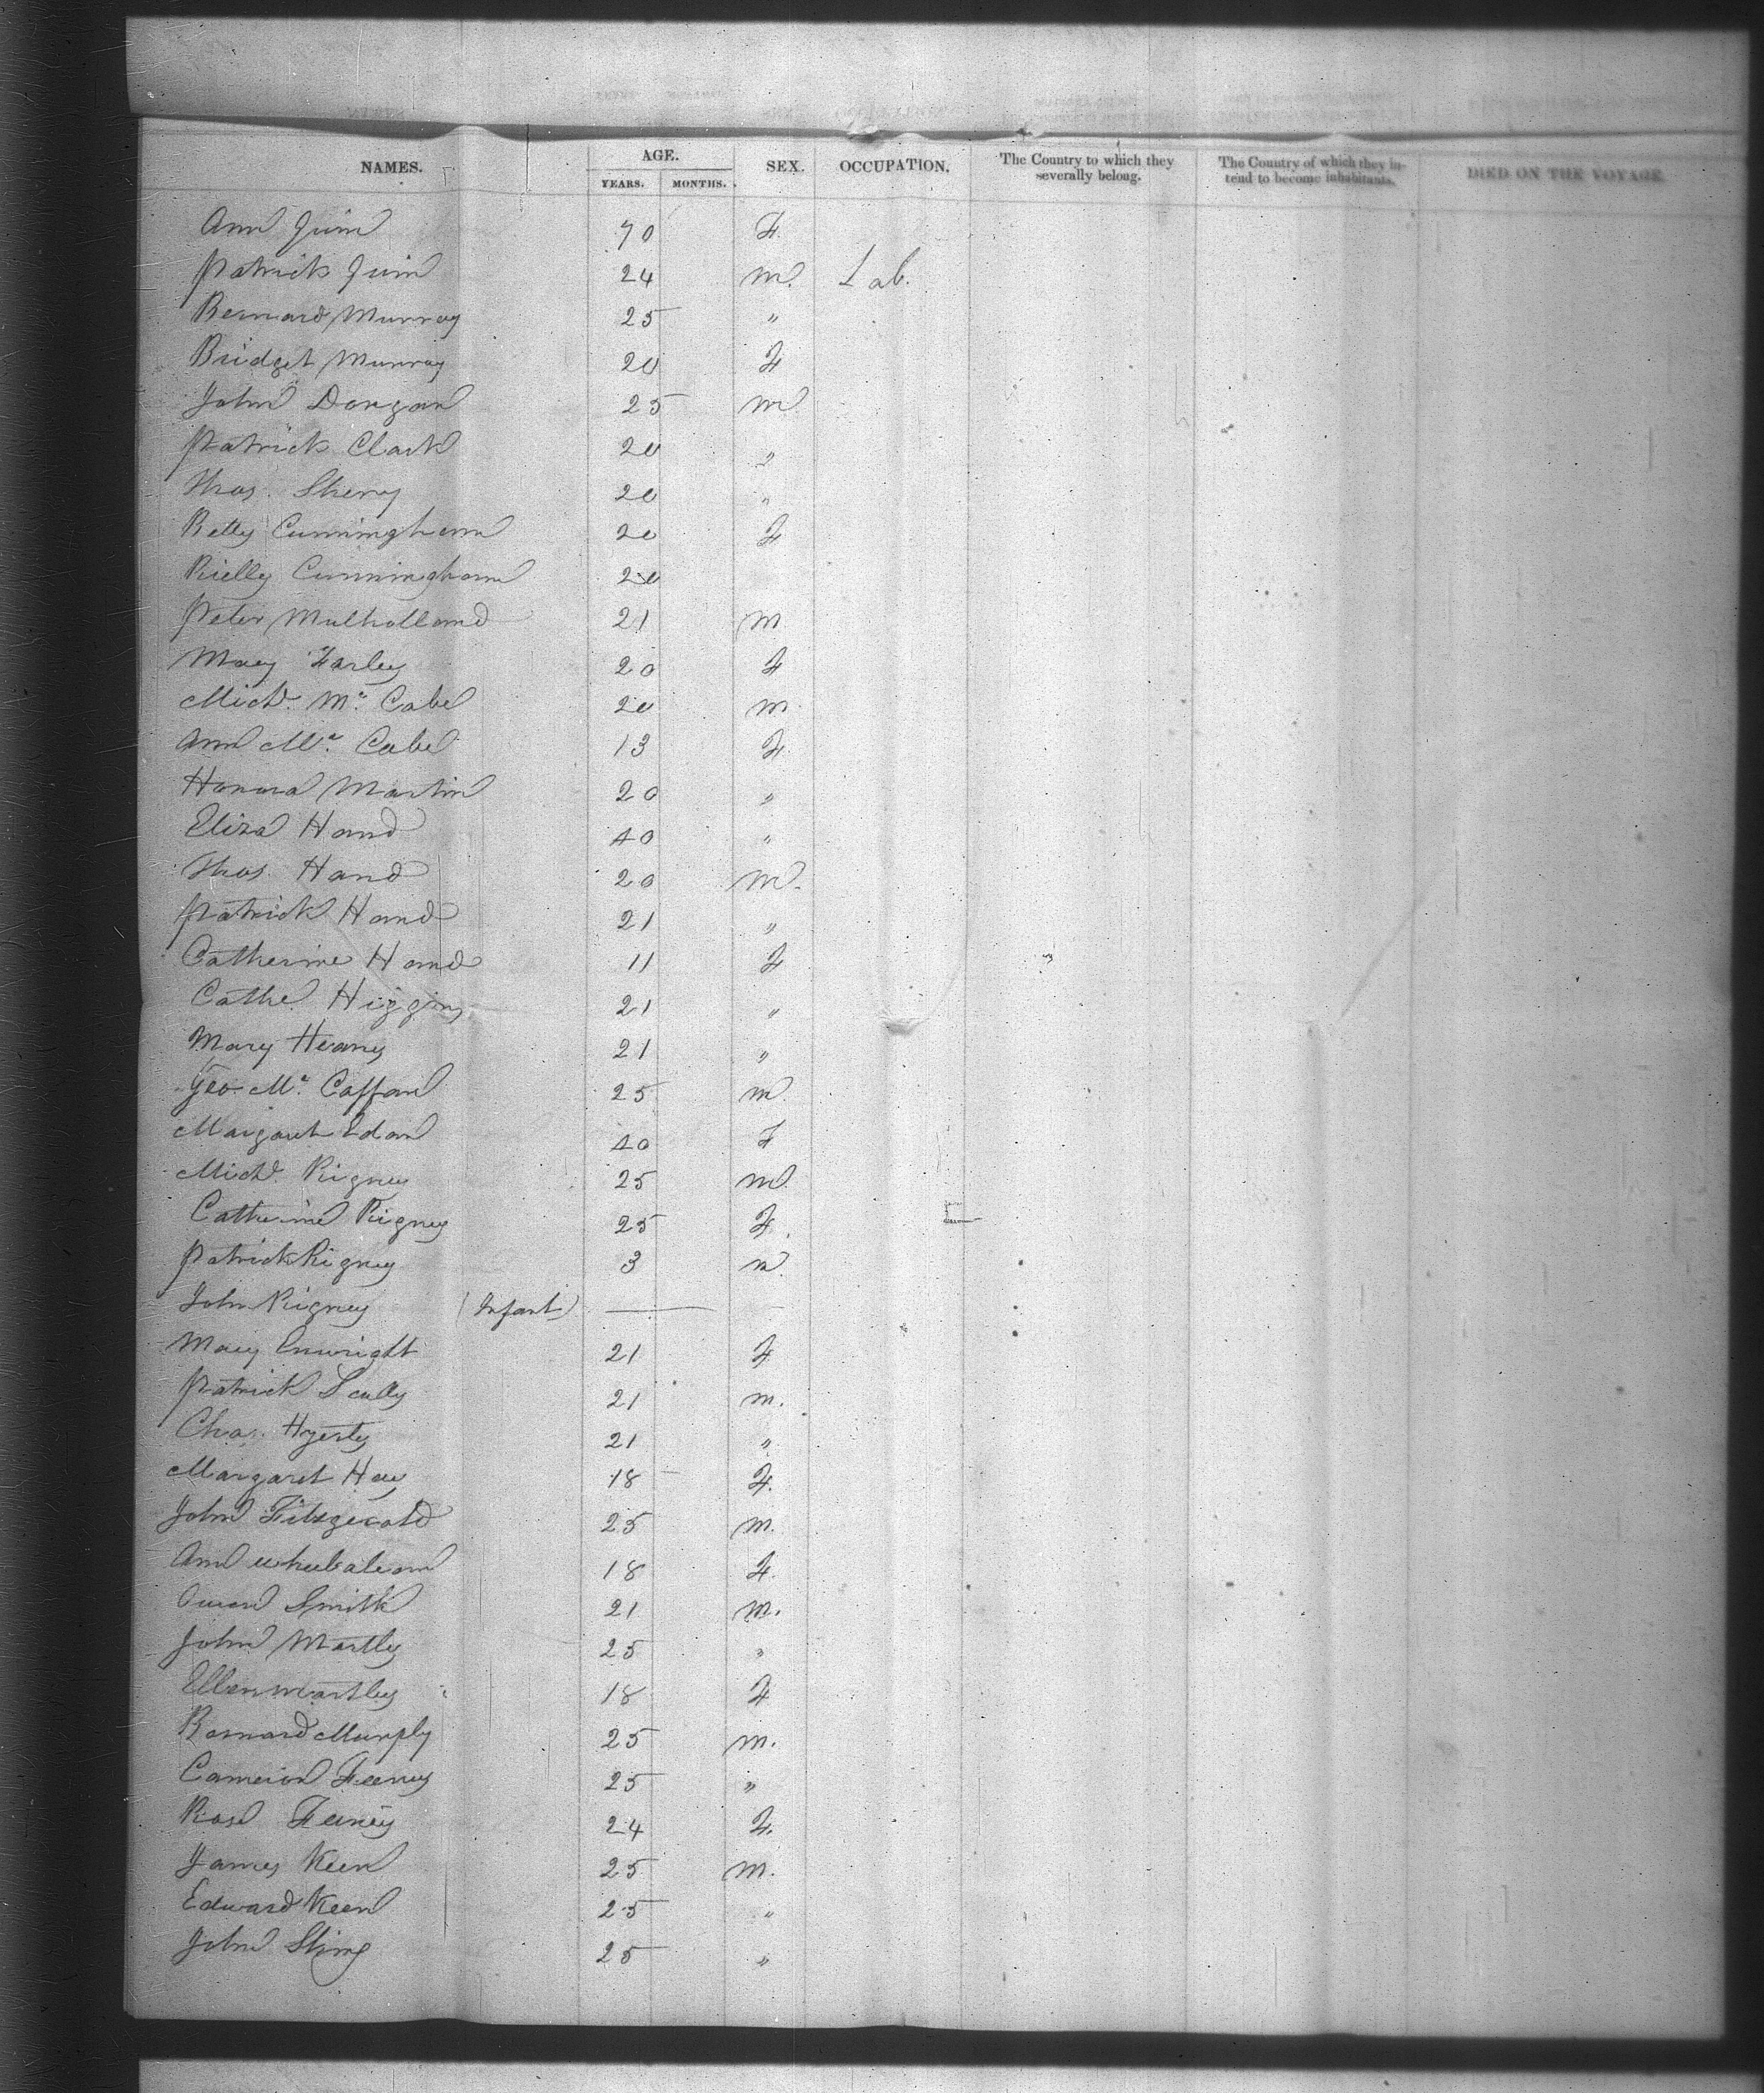 NAMES. AGE. SEX. OCCUPATION. The Country to which they severally belong. The Country of which they intend to become inhabitants. DIED ON THE VOYAGE.
YEARS. MONTHS.
Ann Quin 70 F.
Patrick Quin 24 M. Lab.
Bernard Murray 25 "
Bridget Murray 20 F
John Dongan 25 M
Patrick Clark 20 "
Thos. Sherry 20 "
Betty Cunningham 20 F
Rielly Cunningham 20
Peter Mulholland 21 M
Mary Farley 20 F
Michl. Mc. Cabe 20 M.
Ann Mc. Cabe 13 F.
Honora Martin 20 "
Eliza Hand 40 "
Thos. Hand 20 M.
Patrick Hand 21 "
Catherine Hand 11 F
Cathe. Higgins 21 "
Mary Heany 21 "
Geo. Mc. Caffan 25 M.
Margaret Edan 40 F
Michl. Rigney 25 M.
Catherine Rigney 25 F.
Patrick Rigney 3 M.
John Rigney (Infant) —
Mary Enwright 21 F
Patrick Scully 21 M.
Chas. 21 "
Margaret Hay 18 F.
John Fitzgerald 25 M.
Ann 18 F.
Owen Smith 21 M.
John Martly 25 "
Ellen Martley 18 F
Bernard Murphy 25 M.
Cameron Feeney 25 "
Rose Feeney 24 F.
James Keen 25 M.
Edward Keen 25 "
John 25 "